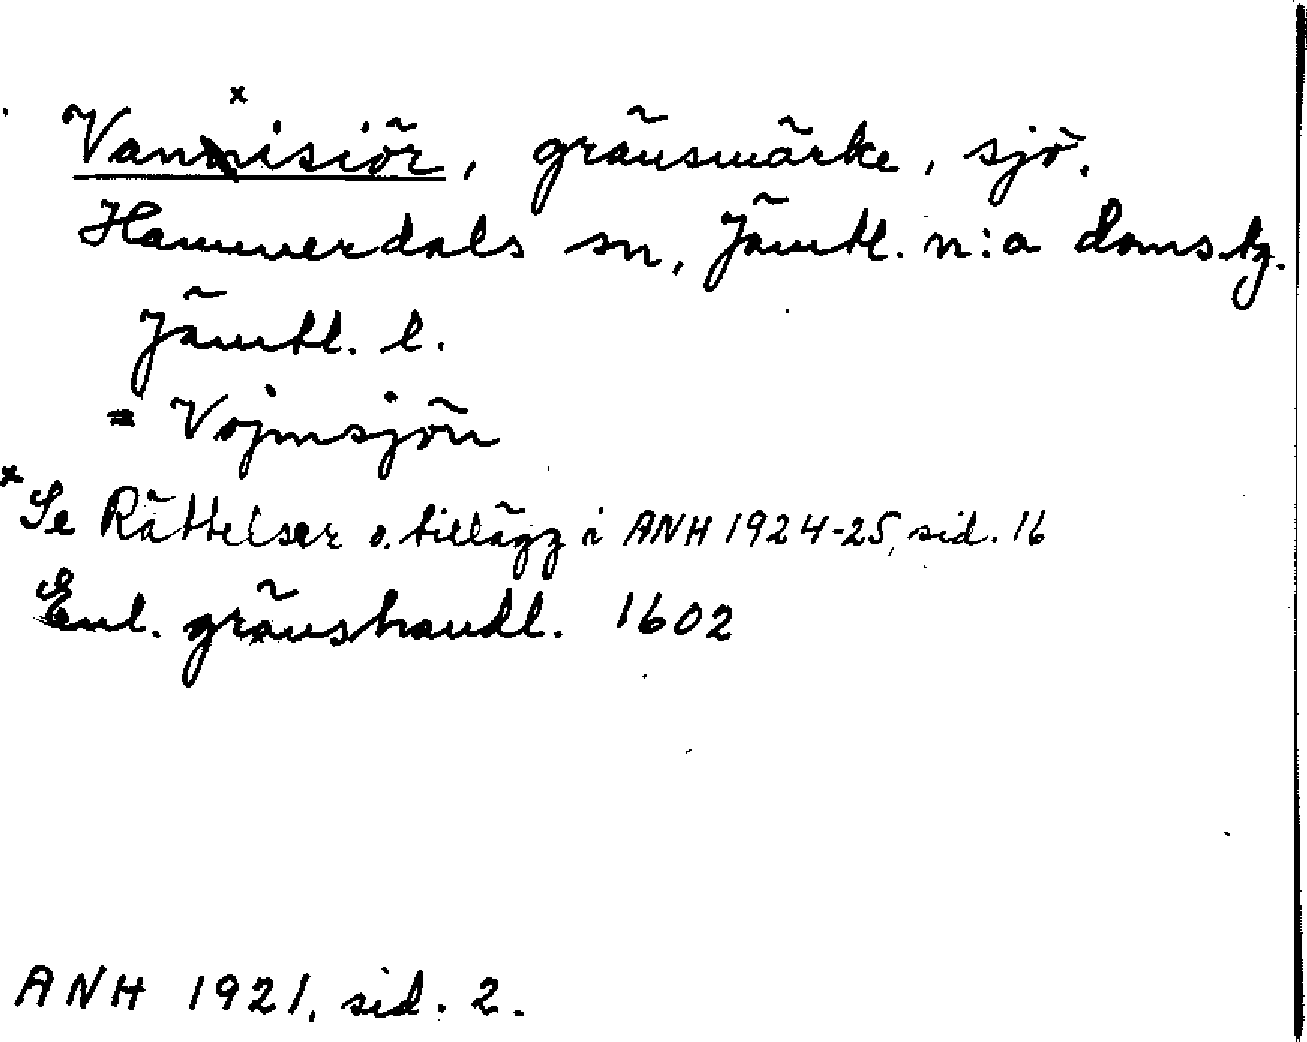 Vannisiör,ˣ gränsmärke, sjö.
Hammerdals sn, Jämtl. n:a doms.tg.
Jämtl. l.
= Vojmsjön
ˣ Se Rättelser o. tillägg i ANH 1924-25, sid. 16
Enl. gränshandl. 1602
ANH 1921, sid. 2.